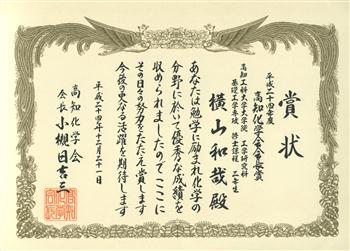 賞状
平成二十四年度
高知化学会会長賞
高知工科大学大学院 工学研究科
基盤工学専攻 修士課程 二年生
横山和哉殿
あなたは勉学に励まれ化学の
分野に於いて優秀な成績を
収められましたのでここに
その日々の努力をたたえ賞します
今後の更なる活躍を期待します
平成二十四年十二月二十一日
高知化学会
会長 小槻日吉三